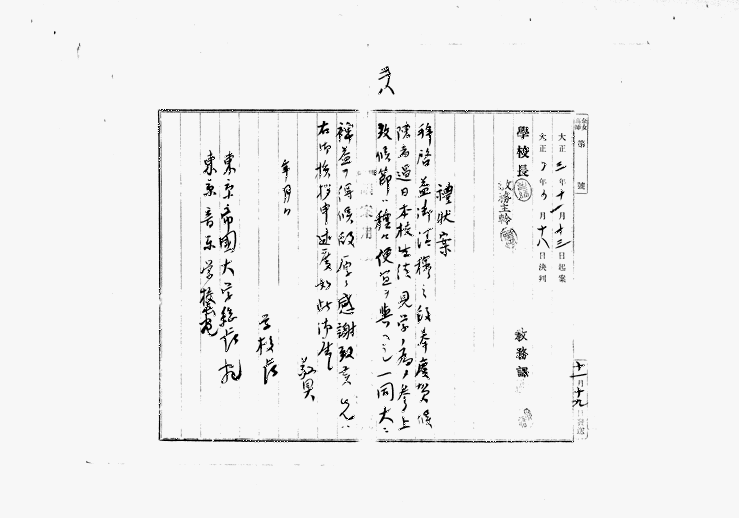 第 號
大正三年十一月十三日起案
大正 年 月十八日決判
學校長
教務主幹
教務課
十一月十九日發送
禮状案
拝啓益御清穆之段奉慶賀候
陳者過日本校生徒見学ノ為メ参上
致候節ハ種々便宜ヲ與ヘラレ一同大ニ
裨益ヲ得候段厚ク感謝致
右御挨拶申述度如此御座候
敬具
年月日
学校長
東京帝国大学総長宛
東京音楽学校長宛